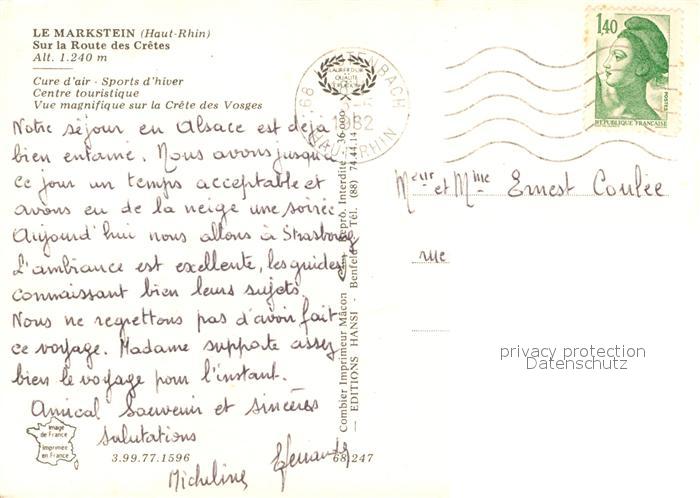 LE MARKSTEIN (Haut-Rhin)
Sur la Route des Crêtes
Alt. 1.240 m
Cure d'air - Sports d'hiver
Centre touristique
Vue magnifique sur la Crête des Vosges
Notre séjour en Alsace est déjà
bien entamé. Nous avons jusqu'à
ce jour un temps acceptable et
avons eu de la neige une soirée
Aujourd'hui nous allons à Strasbourg
L'ambiance est excellente, les guides
connaissant bien leurs sujets.
Nous ne regrettons pas d'avoir fait
ce voyage. Madame supporte assez
bien le voyage pour l'instant.
Amical Souvenir et sincères
salutations
Micheline
Image de France
Imprimée en France
3.99.77.1596
68 247
Combier Imprimeur Mâcon
Repro. Interdite
36.000
— EDITIONS HANSI - Benfeld - Tél. (88) 74.44.14
68
TENBACH
1982
HAUT-RHIN
1,40
POSTES
REPUBLIQUE FRANÇAISE
Meur et Mme Ernest Coulée
rue
privacy protection
Datenschutz